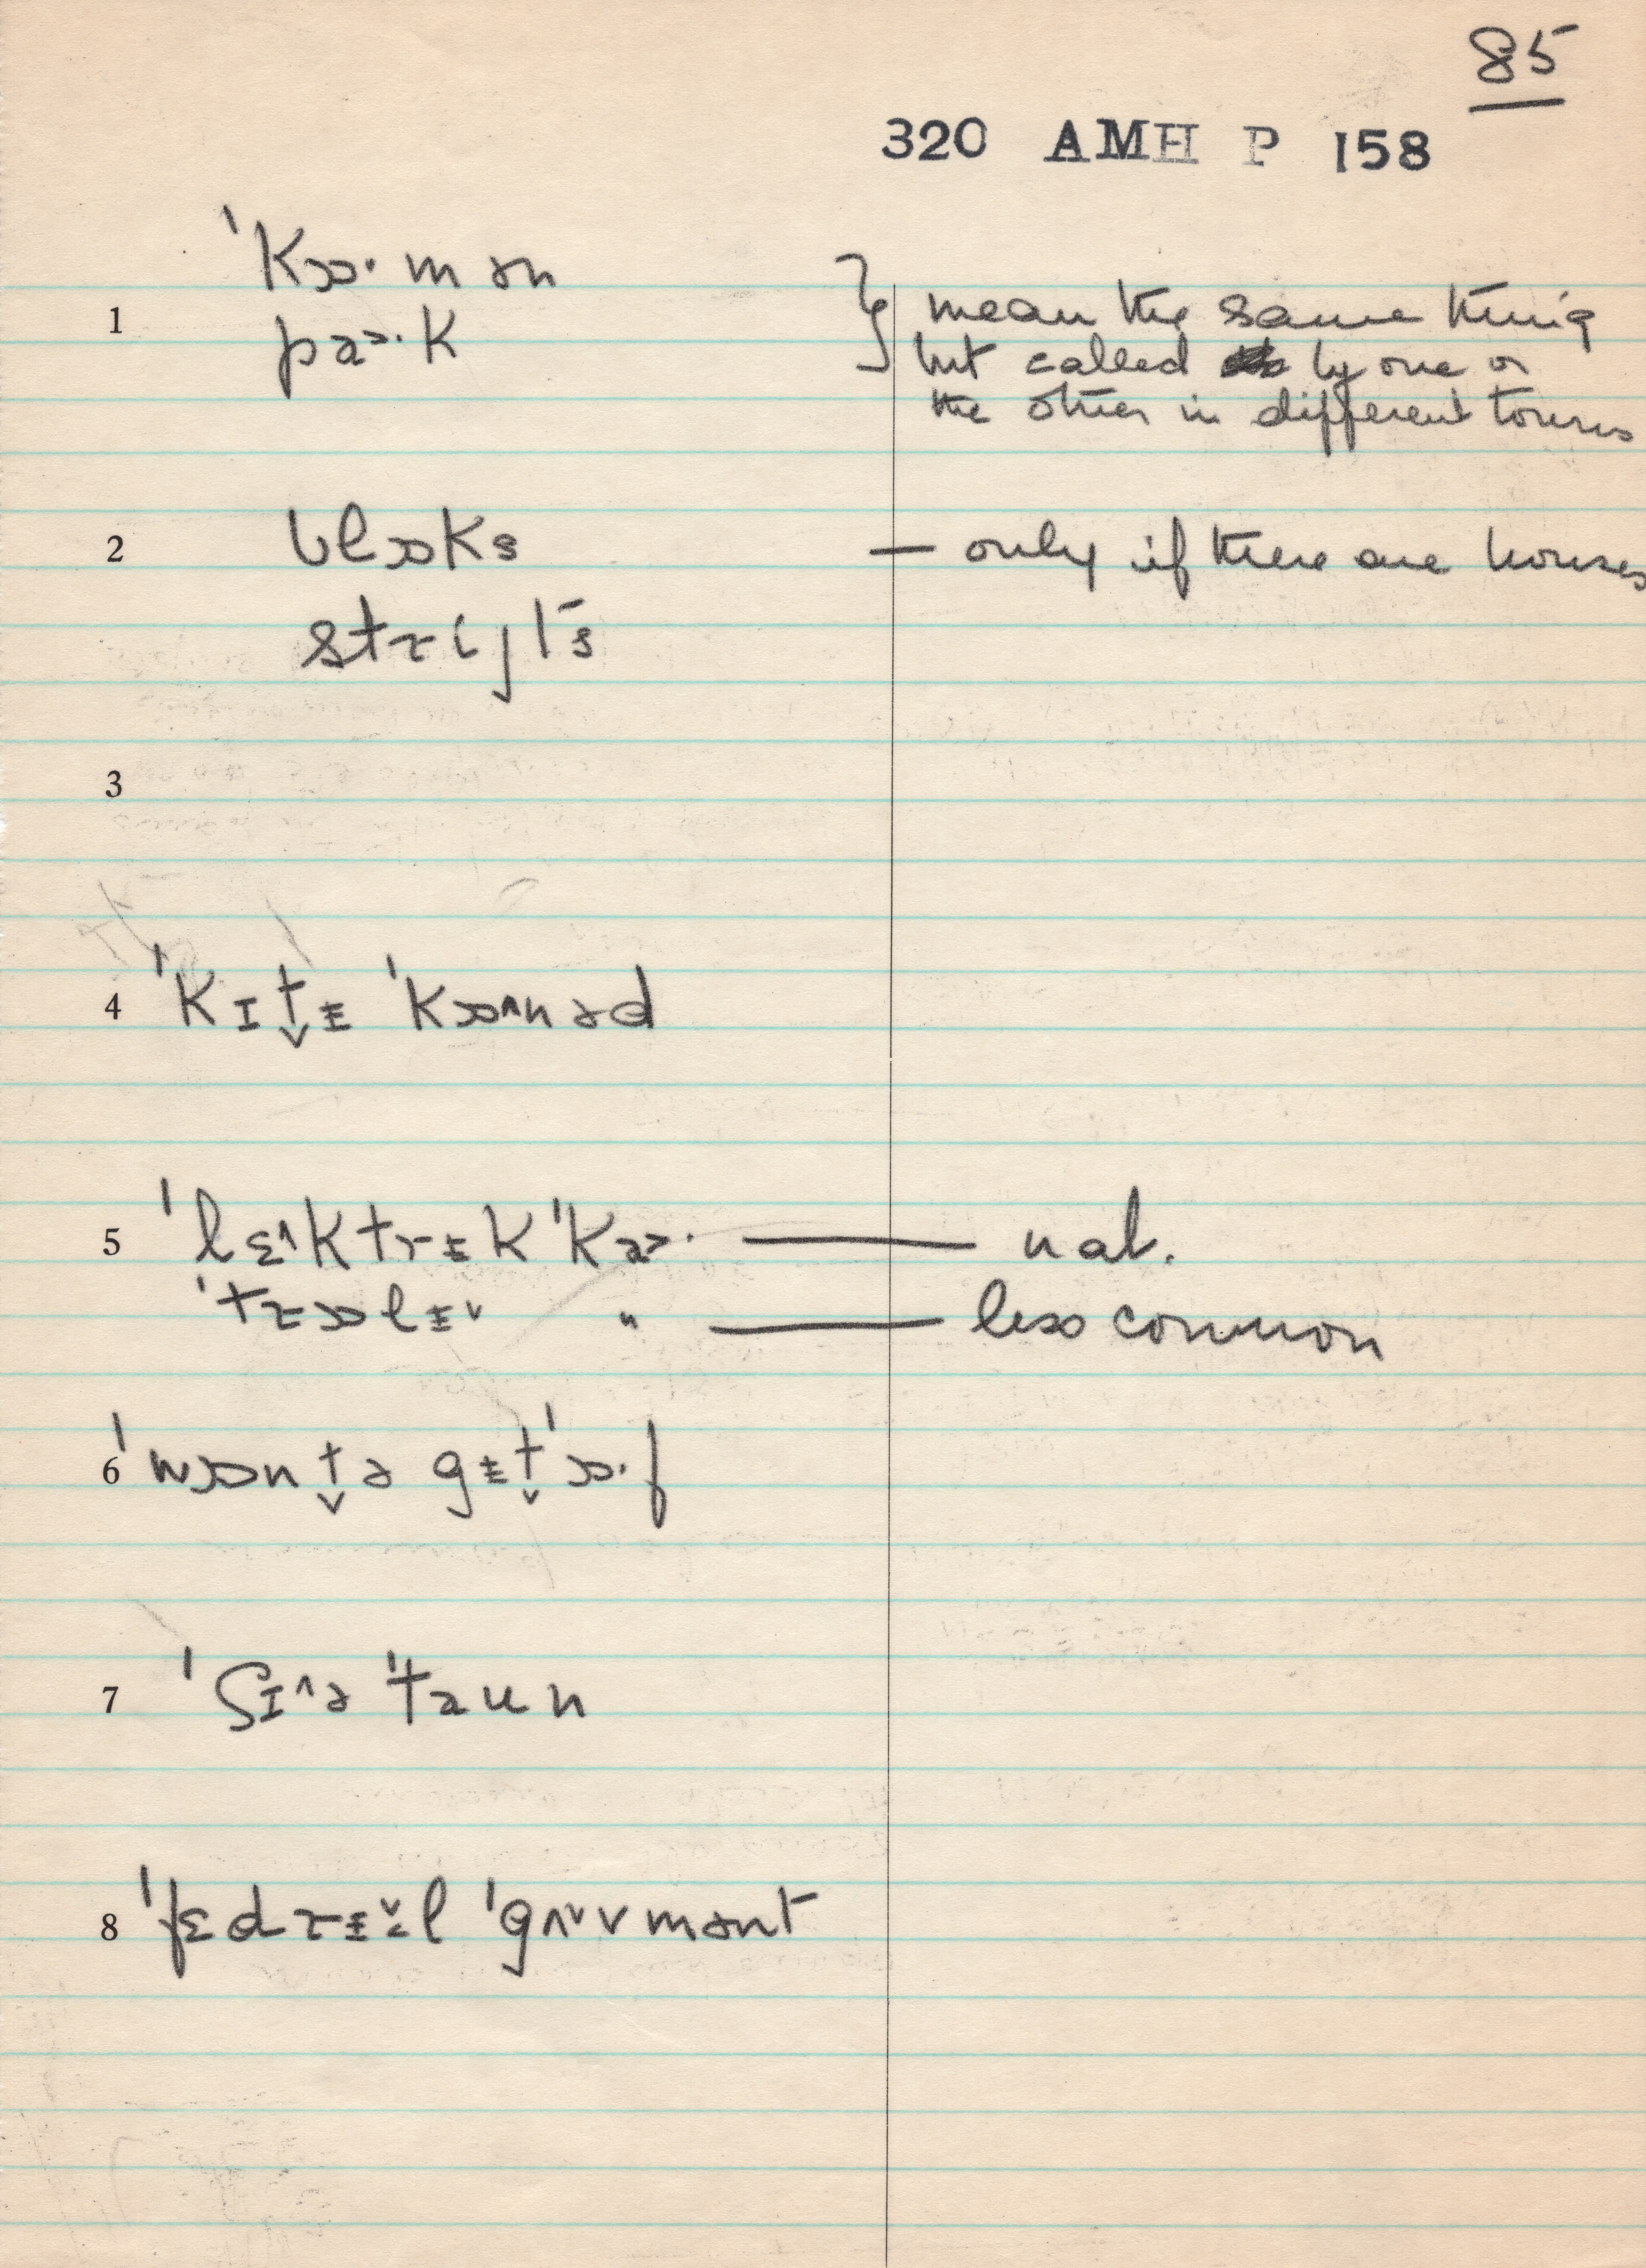 85
320 AMH P 158
1
ˈkɒ·mən
pa>·k
} mean the same thing
but called by one or
the other in different towns
2
blɒks
— only if there are houses
strijt's
3
4 ˈkɪt̬ᵻ ˈkɒ^nəd
5 ˈlɛ^ktrᵻk ˈka>· — nat.
ˈtrɒlᵻ˅ " — less common
6 ˈwɒnt̬ə gᵻt̬ ˈɒ·f
7 ˈʃɪ^ə ˈtaun
8 ˈfɛdrᵻ˅l ˈgʌ˅vmənt